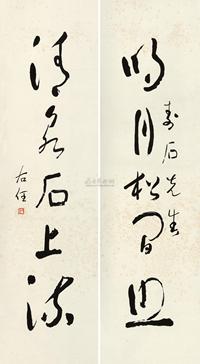 明月松间照
寿石先生
清泉石上流
右任